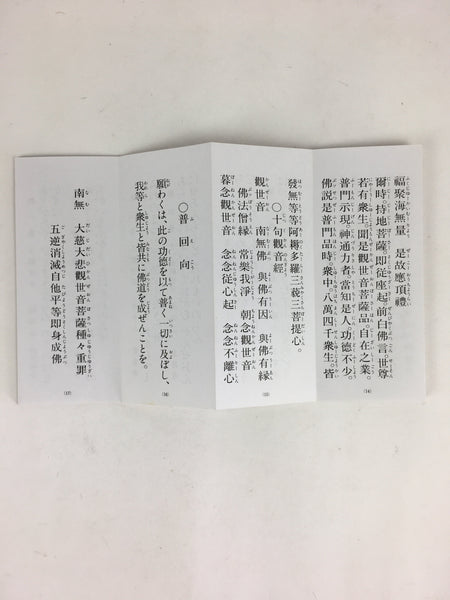 福聚海無量　是故應頂禮
爾時持地菩薩。即從座起。前白佛言。世尊
若有衆生。聞是觀世音菩薩品。自在之業。
普門示現神通力者。當知是人。功德不少。
佛説是普門品時。衆中。八萬四千衆生。皆
(14)
發無等等阿耨多羅三藐三菩提心。
〇十句觀音經
觀世音　南無佛　與佛有因　與佛有縁
佛法僧縁　常樂我淨　朝念觀世音
暮念觀世音　念念從心起　念念不離心
(15)
〇普回向
願わくは、此の功德を以て普く一切に及ぼし、
我等と衆生と皆共に佛道を成ぜんことを。
(16)
南無　大慈大悲觀世音菩薩種々重罪
五逆消滅自他平等即身成佛
(17)